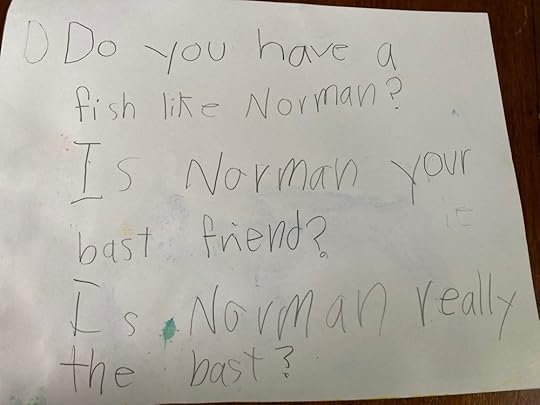 D Do you have a
fish like Norman?
Is Norman your
bast friend?
Is Norman really
the bast?